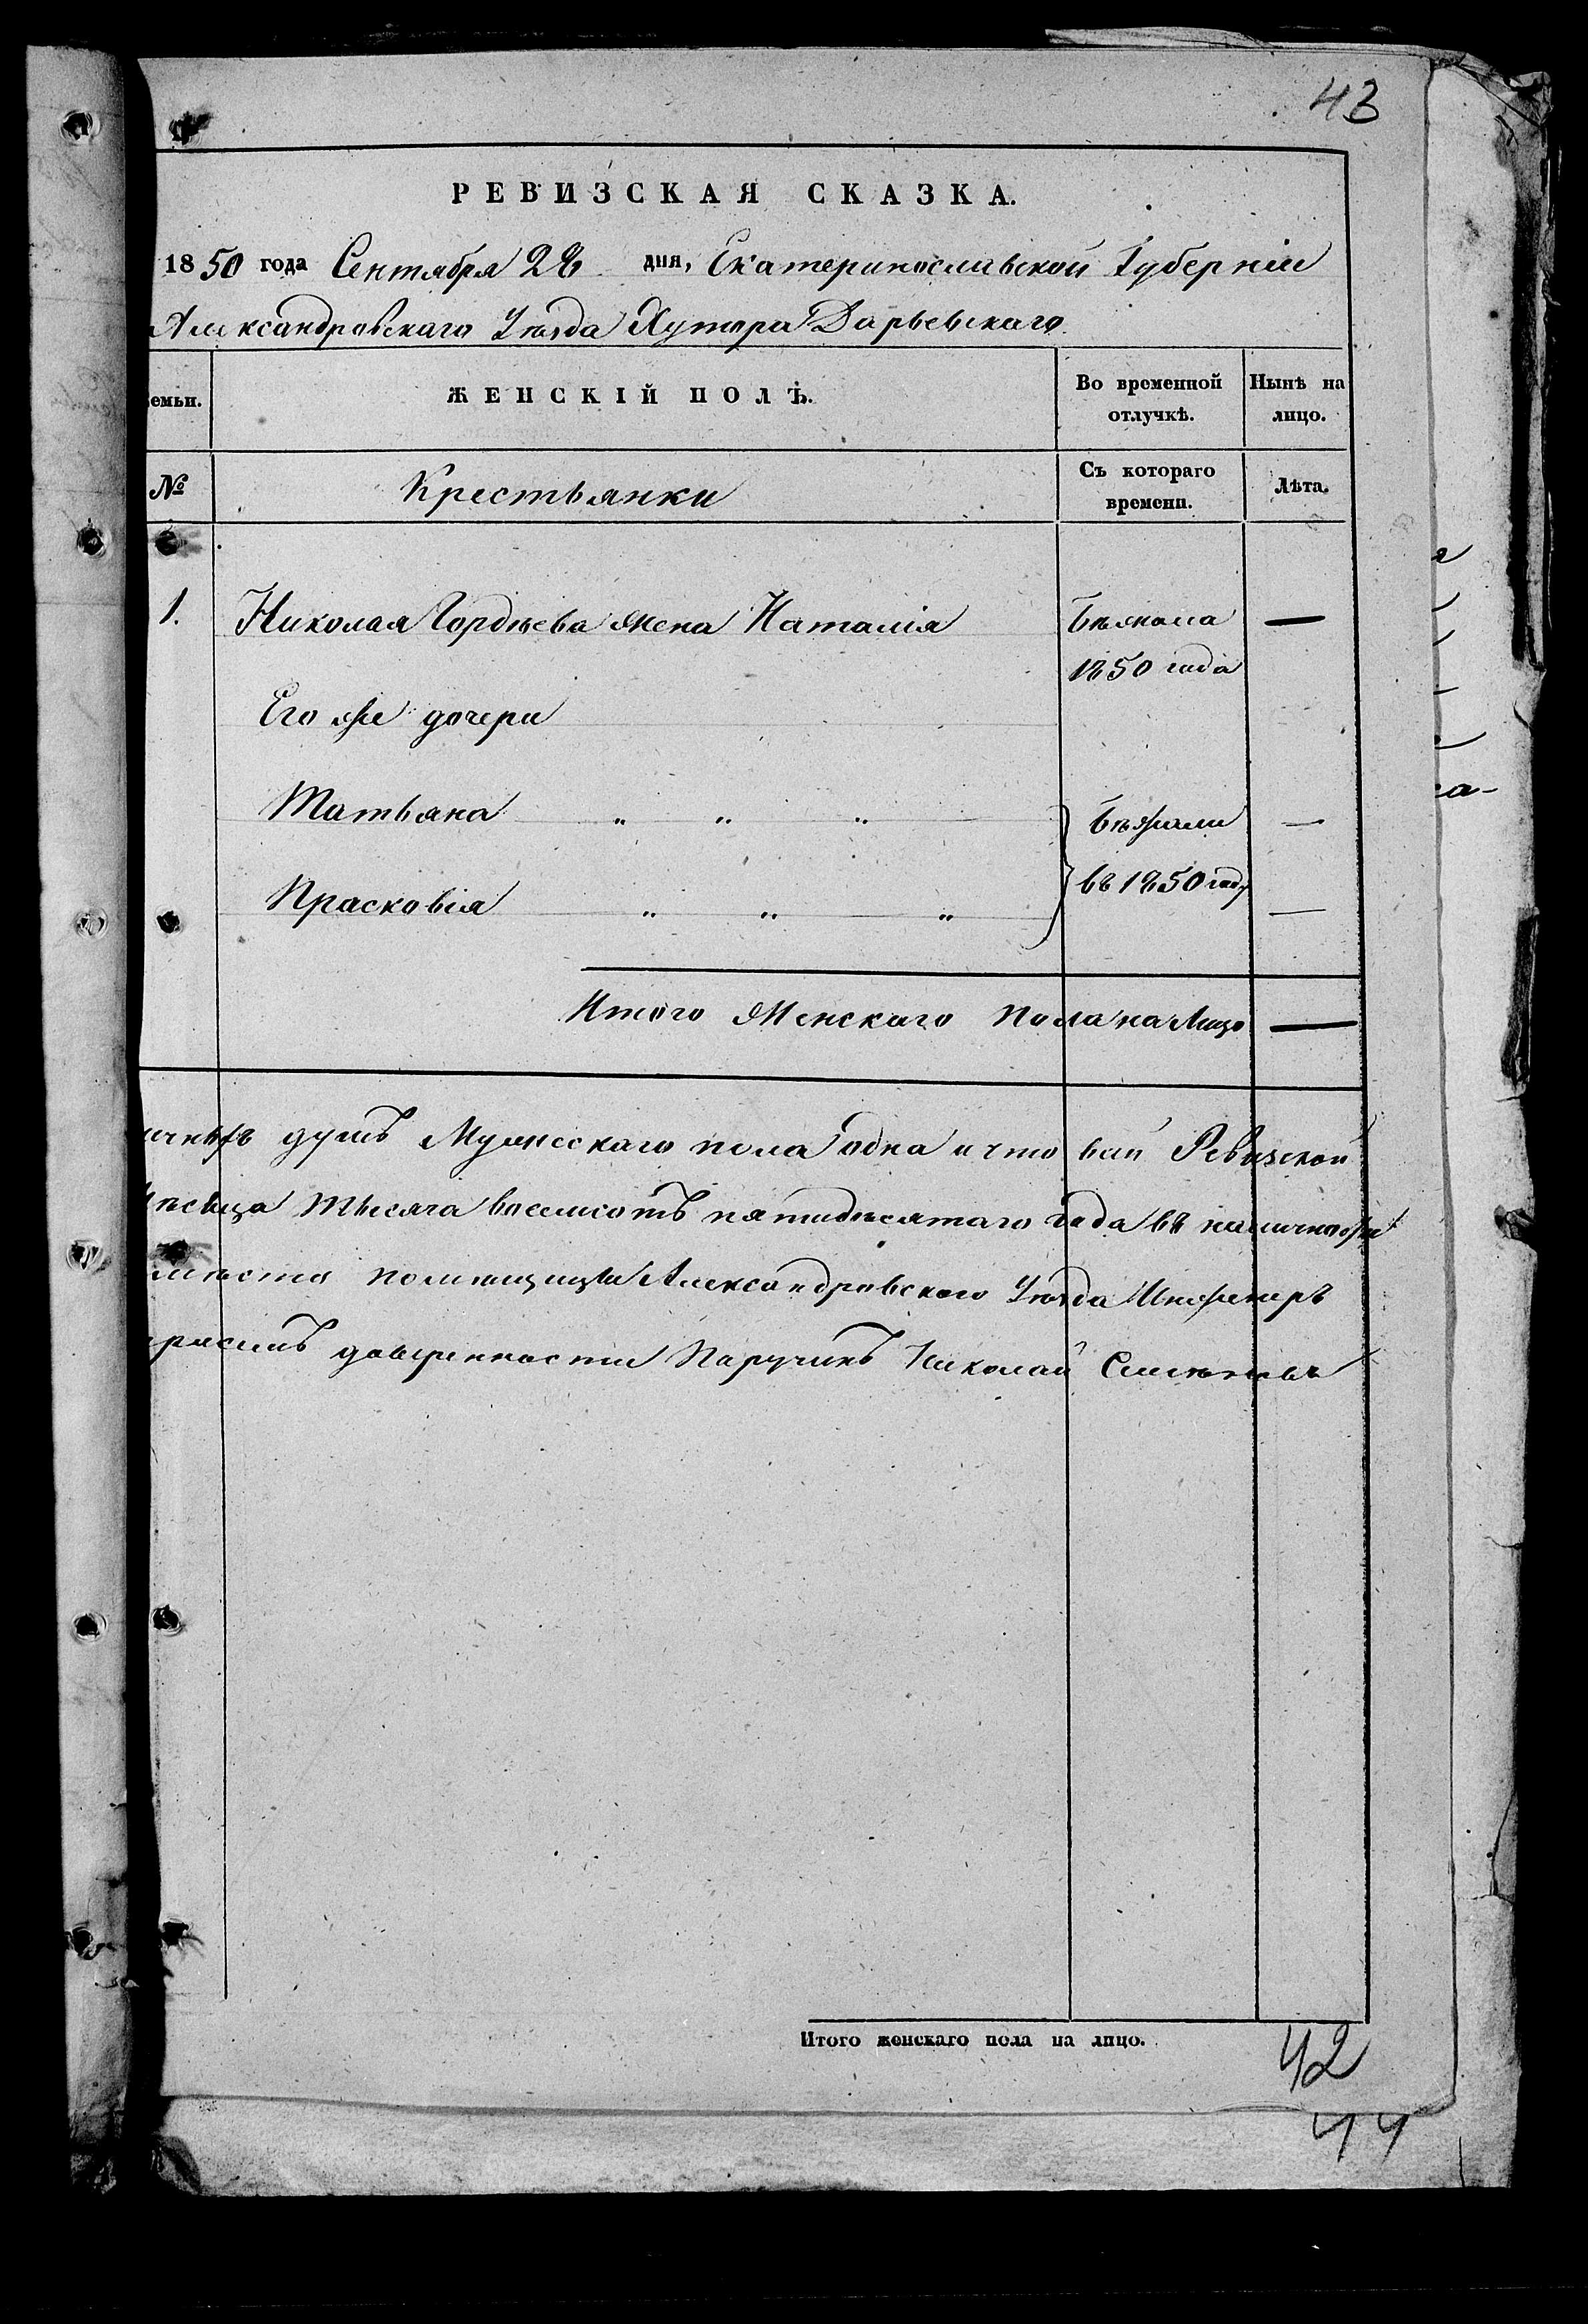 43
РЕВИЗСКАЯ СКАЗКА.
1850 года Сентября 28 дня, Екатеринославской Губерніи
Александровскаго Уѣзда Хутора Дарьевскаго
емьи. ЖЕНСКІЙ ПОЛЪ. Во временной отлучкѣ. Нынѣ на лицо.
№ Крестьянки Съ котораго времени. Лѣта.
1. Николая Гордѣева жена Наталія Бѣжала —
1850 года
Его же дочери
Татьяна " " " Бѣжали —
Прасковія " " " въ 1850 году —
Итого Женскаго пола на Лицо —
душъ Мужескаго пола одна и что вай Ревизской
тысяча восемсотъ пятидесятаго года въ
помѣщицы Александровского Уѣзда Инженеръ
довѣренности Николай
Итого женскаго пола на лицо.
42
44